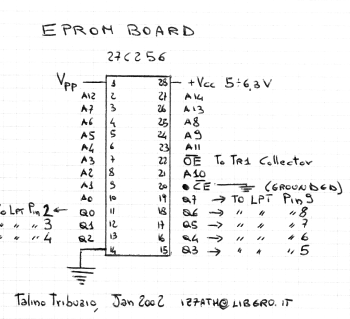 EPROM BOARD
27C256
Vpp 1 28 +Vcc 5÷6,3V
A12 2 27 A14
A7 3 26 A13
A6 4 25 A8
A5 5 24 A9
A4 6 23 A11
A3 7 22 OE To TR1 Collector
A2 8 21 A10
A1 9 20 CE (GROUNDED)
A0 10 19 Q7 → TO LPT Pin 9
To LPT Pin 2 ← Q0 11 18 Q6 → " " " 8
" " 3 Q1 12 17 Q5 → " " " 7
" " 4 Q2 13 16 Q4 → " " " 6
14 15 Q3 → " " " 5
Talino Tribuzio, Jan 2002 IZ7ATH@LIBERO.IT